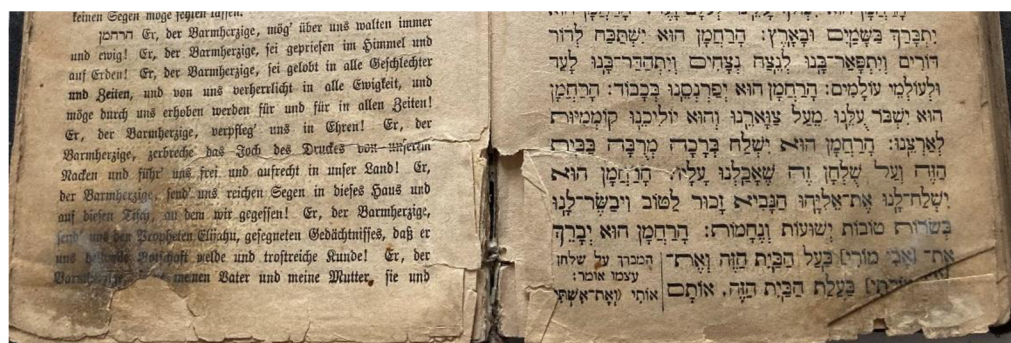 keinen Segen möge fehlen lassen.
הרחמן Er, der Barmherzige, mög' über uns walten immer
und ewig! Er, der Barmherzige, sei gepriesen im Himmel und
auf Erden! Er, der Barmherzige, sei gelobt in alle Geschlechter
und Zeiten, und von uns verherrlicht in alle Ewigkeit, und
möge durch uns erhoben werden für und für in allen Zeiten!
Er, der Barmherzige, verpfleg' uns in Ehren! Er, der
Barmherzige, zerbreche das Joch des Druckes von unserm
Nacken und führ' uns frei und aufrecht in unser Land! Er,
der Barmherzige, send' uns reichen Segen in dieses Haus und
auf diesen Tisch, an dem wir gegessen! Er, der Barmherzige,
send' uns den Propheten Elijahu, gesegneten Gedächtnisses, daß er
uns Botschaft melde und trostreiche Kunde! Er, der
Barmherzige, meinen Vater und meine Mutter, sie und
יִתְבָּרַךְ בַּשָּׁמַיִם וּבָאָרֶץ: הָרַחֲמָן הוּא יִשְׁתַּבַּח לְדוֹר
דּוֹרִים וְיִתְפָּאַר־בָּנוּ לְנֵצַח נְצָחִים וְיִתְהַדַּר־בָּנוּ לָעַד
וּלְעוֹלְמֵי עוֹלָמִים: הָרַחֲמָן הוּא יְפַרְנְסֵנוּ בְּכָבוֹד: הָרַחֲמָן
הוּא יִשְׁבֹּר עֻלֵּנוּ מֵעַל צַוָּארֵנוּ וְהוּא יוֹלִיכֵנוּ קוֹמְמִיּוּת
לְאַרְצֵנוּ: הָרַחֲמָן הוּא יִשְׁלַח בְּרָכָה מְרֻבָּה בַּבַּיִת
הַזֶּה וְעַל שֻׁלְחָן זֶה שֶׁאָכַלְנוּ עָלָיו: הָרַחֲמָן הוּא
יִשְׁלַח־לָנוּ אֶת־אֵלִיָּהוּ הַנָּבִיא זָכוּר לַטּוֹב וִיבַשֶּׂר־לָנוּ
בְּשׂוֹרוֹת טוֹבוֹת יְשׁוּעוֹת וְנֶחָמוֹת: הָרַחֲמָן הוּא יְבָרֵךְ
אֶת־[אָבִי מוֹרִי] בַּעַל הַבַּיִת הַזֶּה וְאֶת־
בַּעֲלַת הַבַּיִת הַזֶּה, אוֹתָם
המברך על שלחן
עצמו אומר:
אוֹתִי (וְאֶת־אִשְׁתִּי